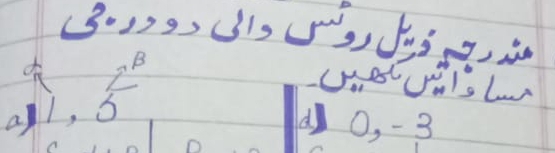 مندرجہ ذیل روٹس والی دو درجی
مساواتیں لکھیں
α β
a) 1, 5 d) 0, -3